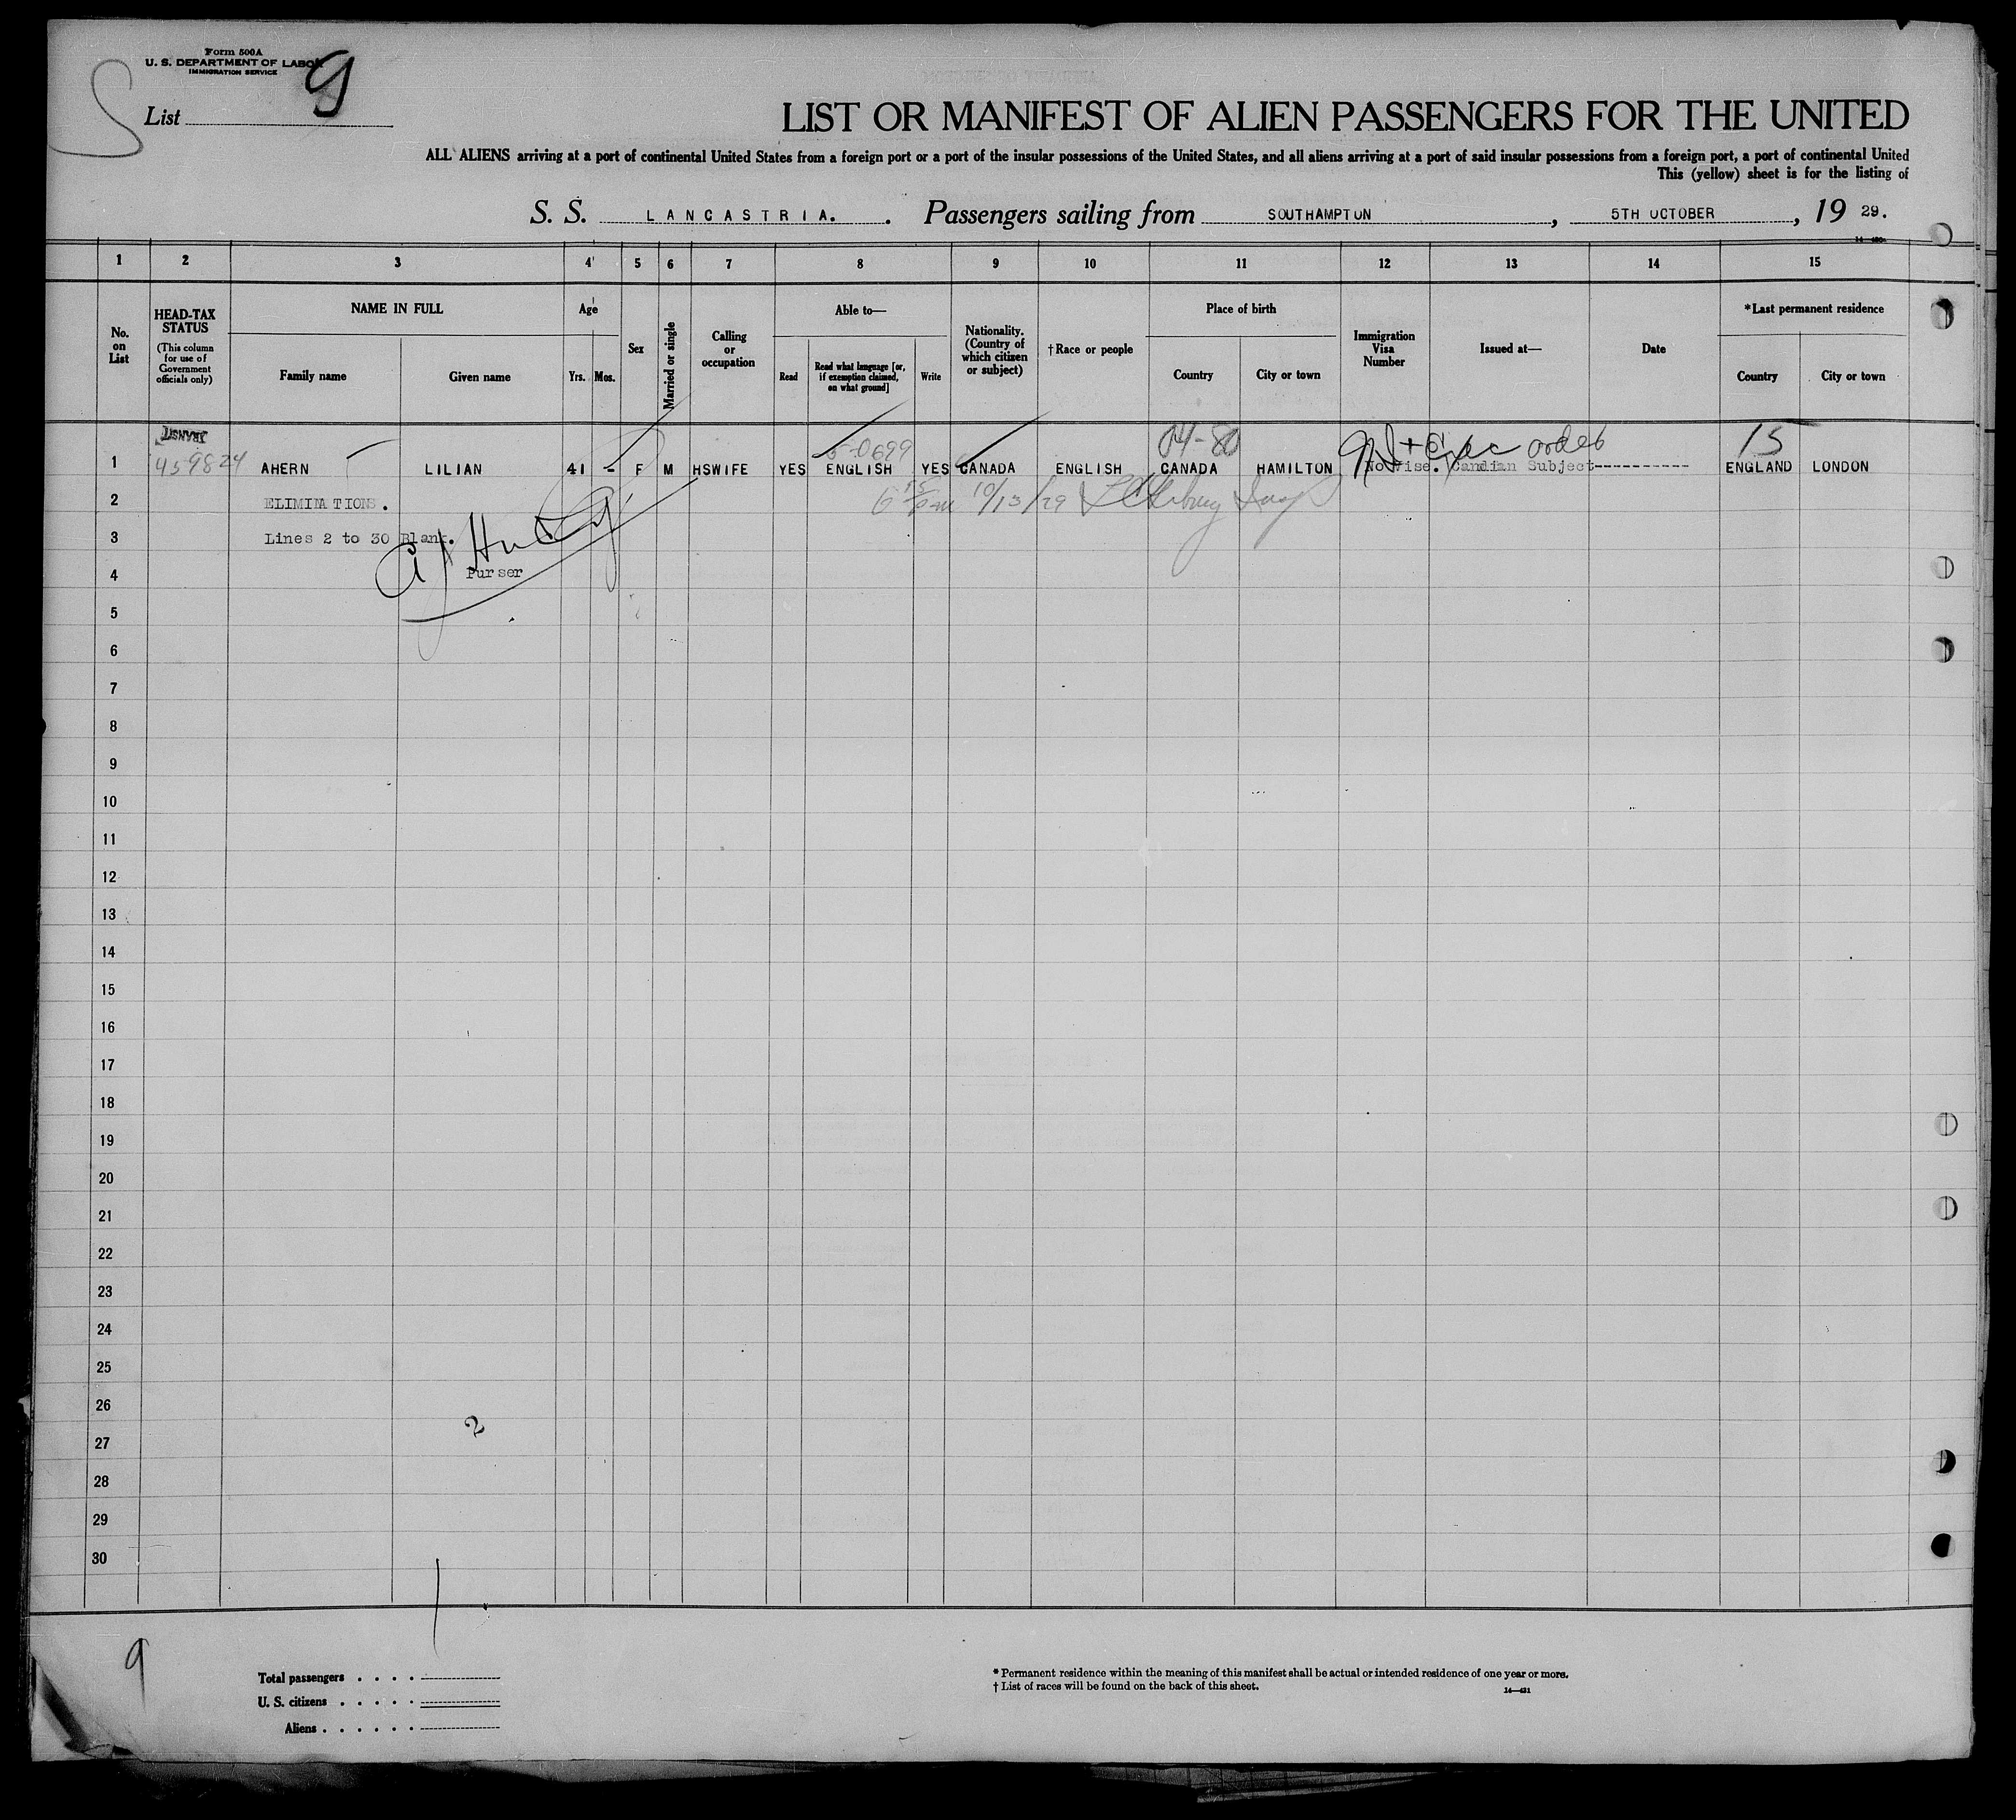 Form 500A
U. S. DEPARTMENT OF LABOR
IMMIGRATION SERVICE
9
List
LIST OR MANIFEST OF ALIEN PASSENGERS FOR THE UNITED
ALL ALIENS arriving at a port of continental United States from a foreign port or a port of the insular possessions of the United States, and all aliens arriving at a port of said insular possessions from a foreign port, a port of continental United
This (yellow) sheet is for the listing of
S. S. LANCASTRIA. . Passengers sailing from SOUTHAMPTON , 5TH OCTOBER , 19 29.
1 2 3 4 5 6 7 8 9 10 11 12 13 14 15
No. on List
HEAD-TAX STATUS
(This column for use of Government officials only)
NAME IN FULL
Family name
Given name
Age
Yrs. Mos.
Sex
Married or single
Calling or occupation
Able to—
Read
Read what language [or, if exemption claimed, on what ground]
Write
Nationality. (Country of which citizen or subject)
†Race or people
Place of birth
Country
City or town
Immigration Visa Number
Issued at—
Date
*Last permanent residence
Country
City or town
TRANSIT
5-0699 04-80 Exec order 15
1 459824 AHERN LILIAN 41 - F M HSWIFE YES ENGLISH YES CANADA ENGLISH CANADA HAMILTON No Vise. Candian Subject----------- ENGLAND LONDON
2 ELIMINATIONS. 10/13/29
3 Lines 2 to 30 Blank.
4 Purser
5
6
7
8
9
10
11
12
13
14
15
16
17
18
19
20
21
22
23
24
25
26
2
27
28
29
30
9
Total passengers . . . .
U. S. citizens . . . . .
Aliens . . . . . .
* Permanent residence within the meaning of this manifest shall be actual or intended residence of one year or more.
† List of races will be found on the back of this sheet.
14—421